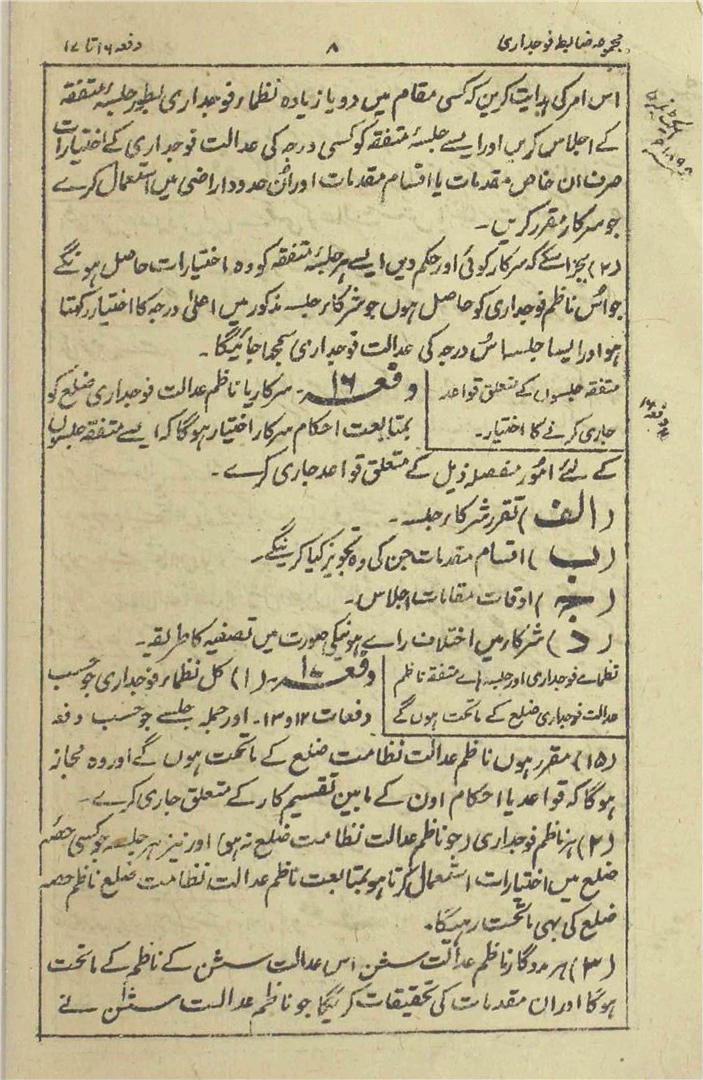 مجموعہ ضابطہ فوجداری ۸ دفعہ ۱۶ تا ۱۷
اس امر کی ہدایت کرین کہ کسی مقام میں دو یا زیادہ نظماء فوجداری بطور جلسۂ متفقہ
کے اجلاس کریں اور ایسے جلسۂ متفقہ کو کسی درجہ کی عدالت فوجداری کے اختیارات
صرف ان خاص مقدمات یا اقسام مقدمات اور اُن حدود اراضی میں استعمال کرے
جو سرکار مقرر کریں۔
(۲) بجز اسکے کہ سرکار کوئی اور حکم دیں ایسے ہر جلسۂ متفقہ کو وہ اختیارات حاصل ہونگے
جو اُس ناظم فوجداری کو حاصل ہوں جو شرکاء جلسہ مذکور میں اعلیٰ درجہ کا اختیار رکہتا
ہو اور ایسا جلسہ اُس درجہ کی عدالت فوجداری سمجھا جائیگا۔
متفقہ جلسوں کے متعلق قواعد
جاری کرنے کا اختیار۔
دفعہ ۱۶۔ سرکار یا ناظم عدالت فوجداری ضلع کو
بمتابعت احکام سرکار اختیار ہوگا کہ ایسے متفقہ جلسوں
کے لئے امور مفصلہ ذیل کے متعلق قواعد جاری کرے۔
(الف) تقرر شرکاء جلسہ۔
(ب) اقسام مقدمات جن کی وہ تجویز کیا کرینگے۔
(ج) اوقات مقامات اجلاس۔
(د) شرکاء میں اختلاف راے ہونیکی صورت میں تصفیہ کا طریقہ۔
نظماے فوجداری اور جلسہ اے متفقہ ناظم
عدالت فوجداری ضلع کے ماتحت ہوں گے
دفعہ ۱۷۔ (۱) کل نظماء فوجداری جو حسب
دفعات ۱۲ و ۱۳۔ اور جملہ جلسے جو حسب دفعہ
(۱۵) مقرر ہوں ناظم عدالت نظامت ضلع کے ماتحت ہوں گے اور وہ مجاز
ہوگا کہ قواعد یا احکام اون کے مابین تقسیم کار کے متعلق جاری کرے۔
(۲) ہر ناظم فوجداری (جو ناظم عدالت نظامت ضلع نہ ہو) اور نیز ہر جلسہ جو کسی حصہ
ضلع میں اختیارات استعمال کرتا ہو بمتابعت ناظم عدالت نظامت ضلع ناظم حصہ
ضلع کی بھی ماتحت رہیگا۔
(۳) ہر مددگار ناظم عدالت سشن اس عدالت سشن کے ناظم کے ماتحت
ہوگا اور ان مقدمات کی تحقیقات کریگا جو ناظم عدالت سشن نے